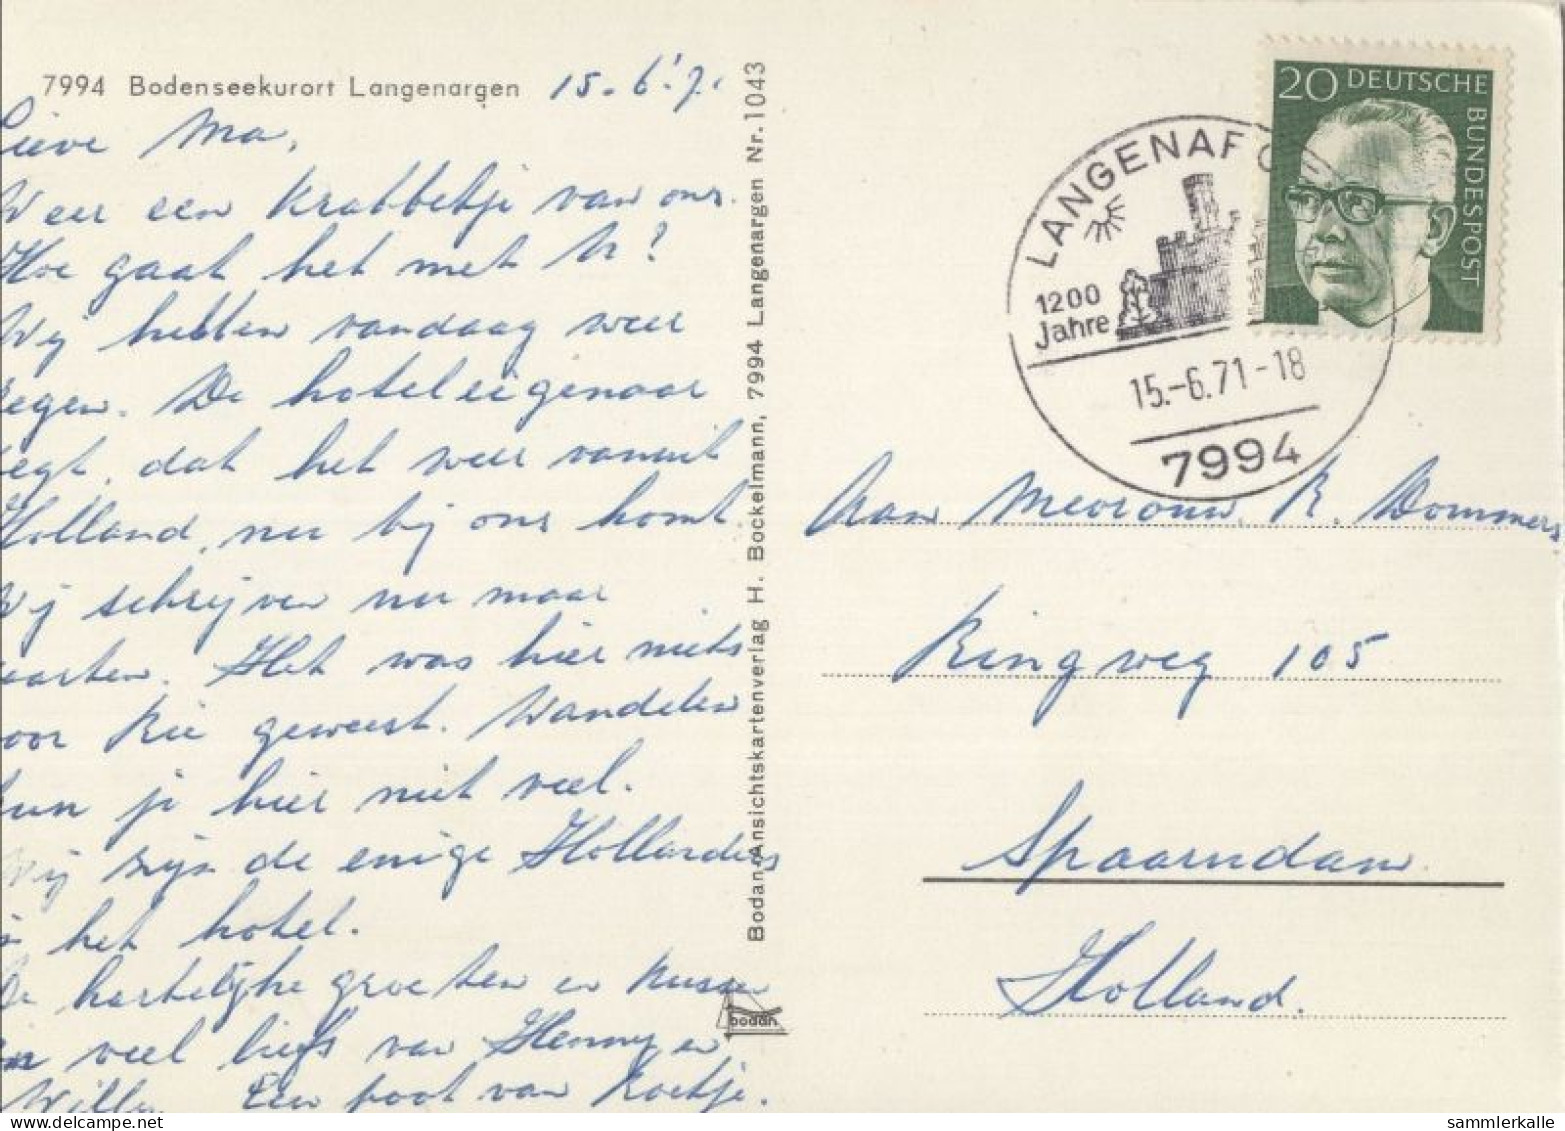 7994 Bodenseekurort Langenargen 15.6.'71
Lieve Ma,
Weer een krabbeltje van ons.
Hoe gaat het met U?
Wij hebben vandaag weer
regen. De hoteleigenaar
zegt, dat het weer vanuit
Holland, nu bij ons komt.
Wij schrijven nu maar
kaarten. Het was hier niets
voor Rie geweest. Wandelen
kun je hier niet veel.
Wij zijn de enige Hollanders
in het hotel.
De hartelijke groeten en kussen
en veel liefs van Henny en
Willy. Een poot van Roetje.
Bodan-Ansichtskartenverlag H. Bockelmann, 7994 Langenargen Nr. 1043
bodan
LANGENAR
1200
Jahre
15.-6.71-18
7994
20 DEUTSCHE
BUNDESPOST
Aan Mevrouw R. Dommers
Ringweg 105
Spaarndam
Holland.
delcampe.net
sammlerkalle